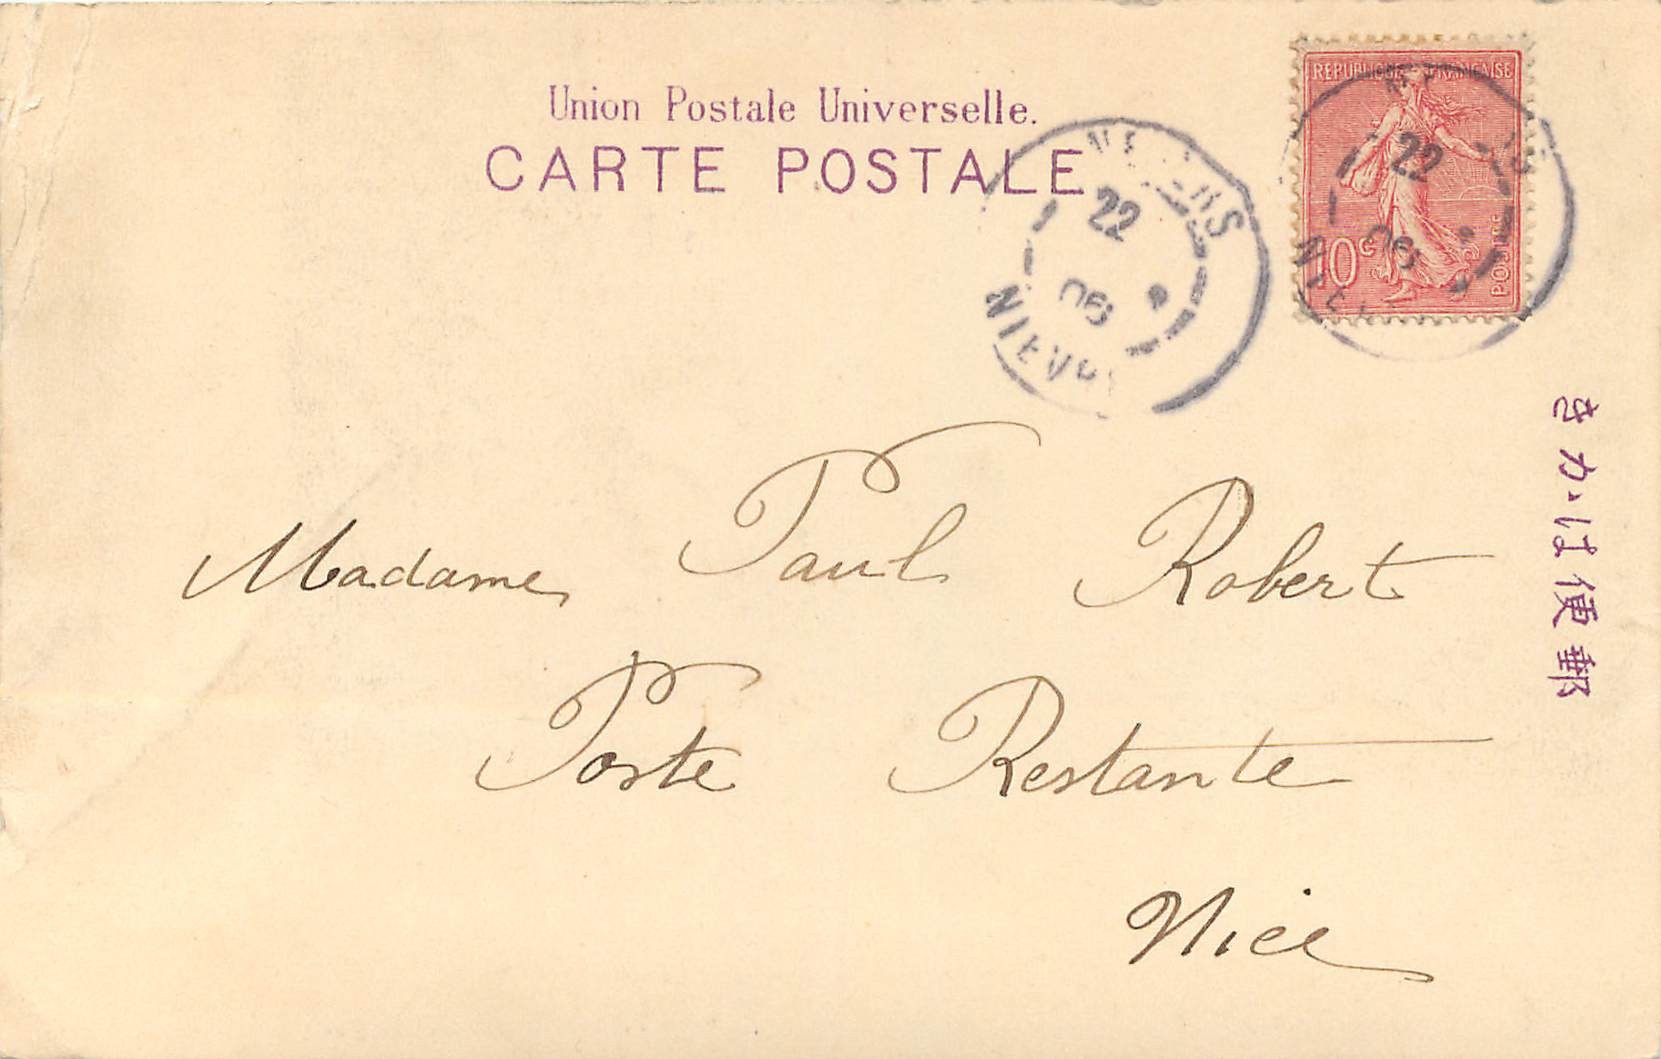 Union Postale Universelle.
CARTE POSTALE
REPUBLIQUE FRANÇAISE
10c
POSTES
22
06
22
06
きかは便郵
Madame Paul Robert
Poste Restante
Nice